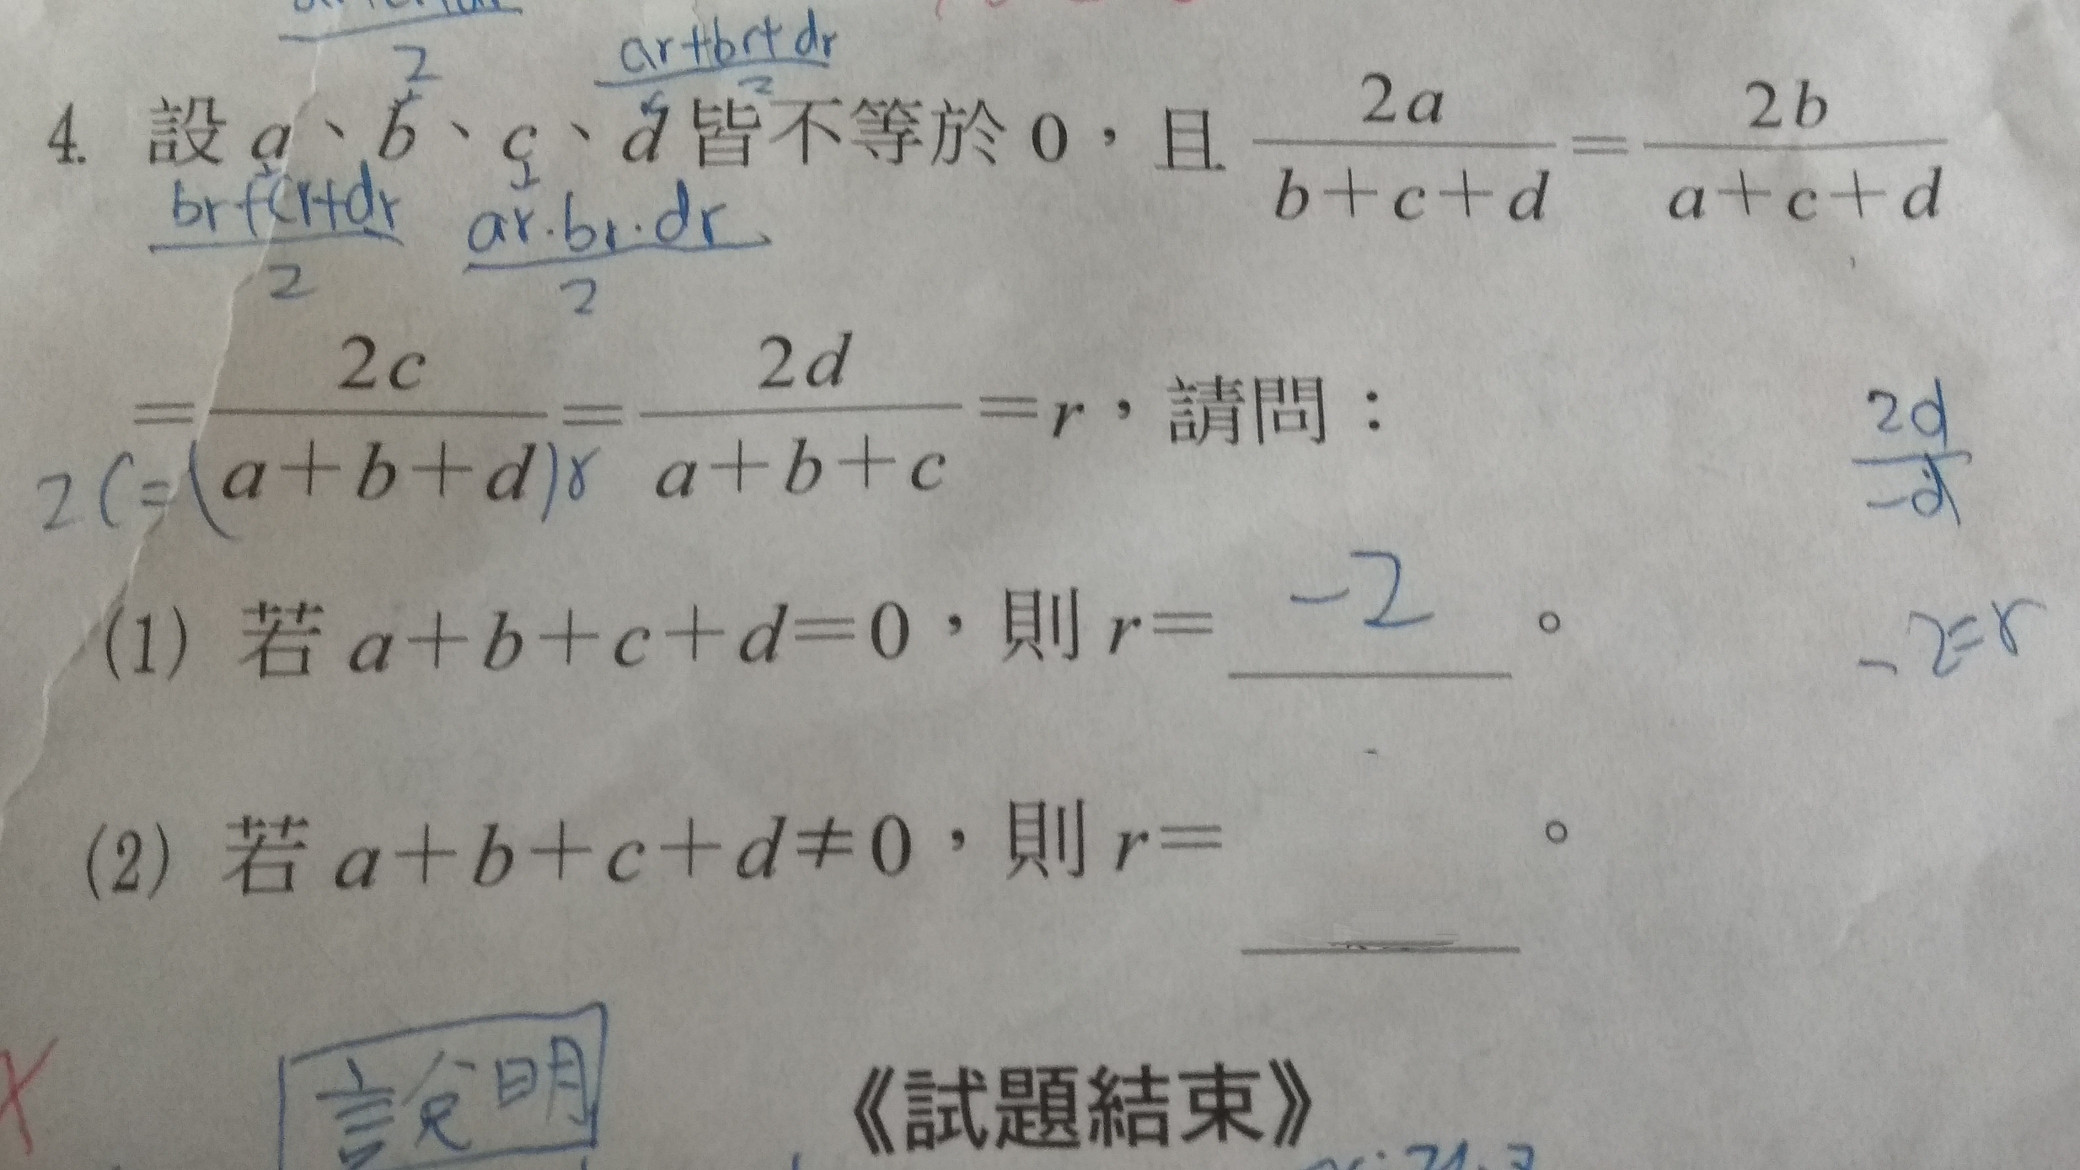 2
ar+br+dr
2
4. 設 a、b、c、d 皆不等於 0，且 2a/(b+c+d) = 2b/(a+c+d)
br+cr+dr
2
ar.br.dr
2
= 2c/(a+b+d) = 2d/(a+b+c) = r，請問：
2c=(a+b+d)r
2d
-d
(1) 若 a+b+c+d=0，則 r= -2 。
-2=r
(2) 若 a+b+c+d≠0，則 r= 。
說明
《試題結束》